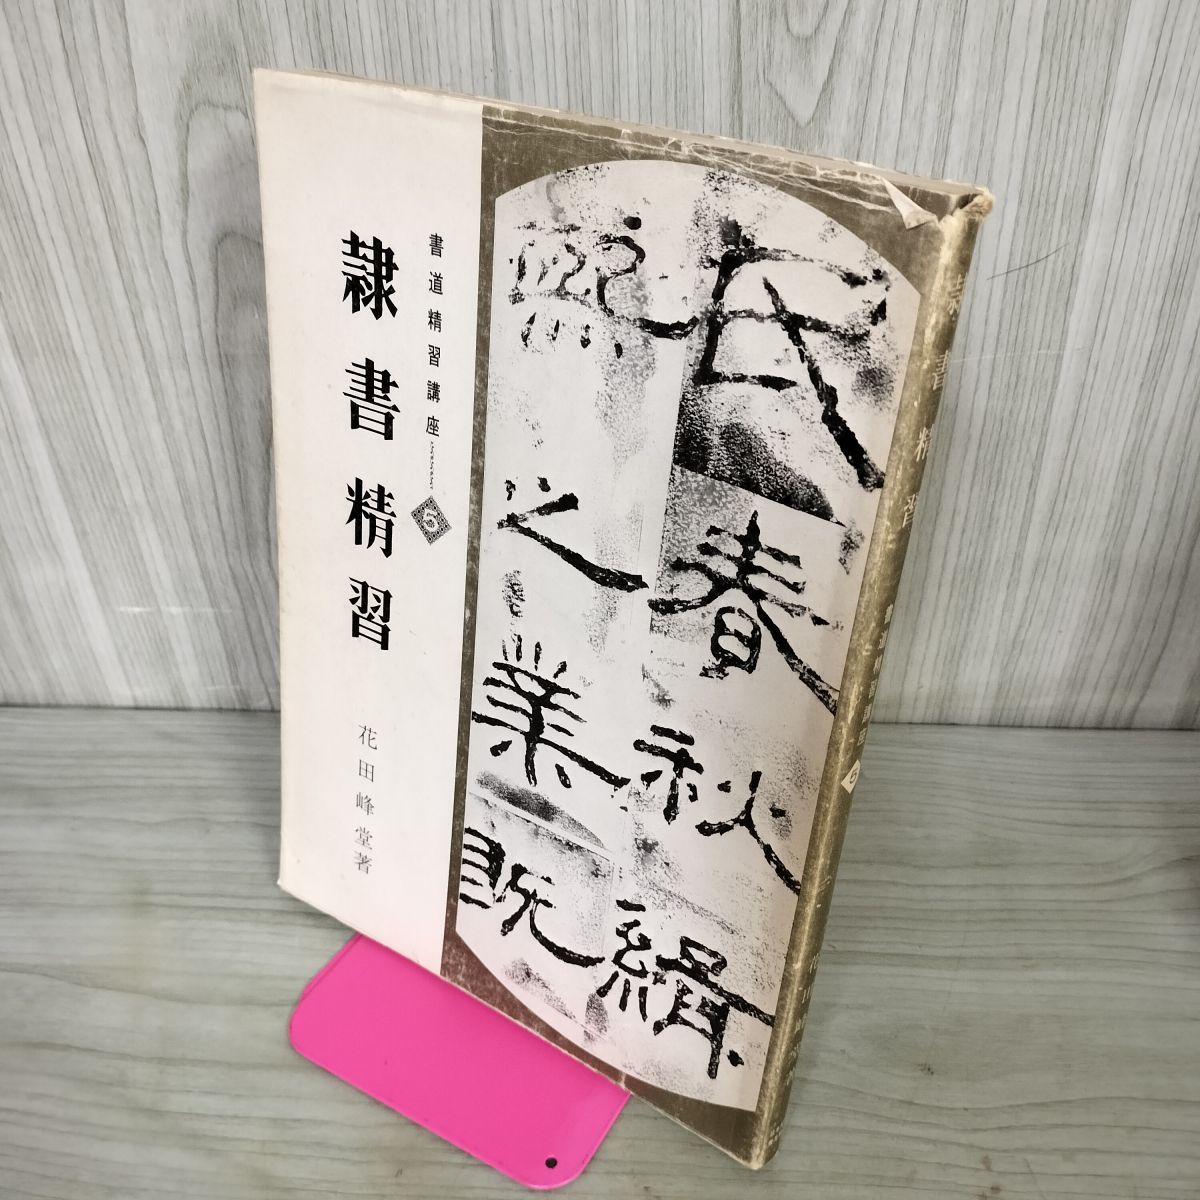 書道精習講座
5
隷書精習
花田峰堂著
氏春秋緝
熙之業既
隷書精習
書道精習講座
5